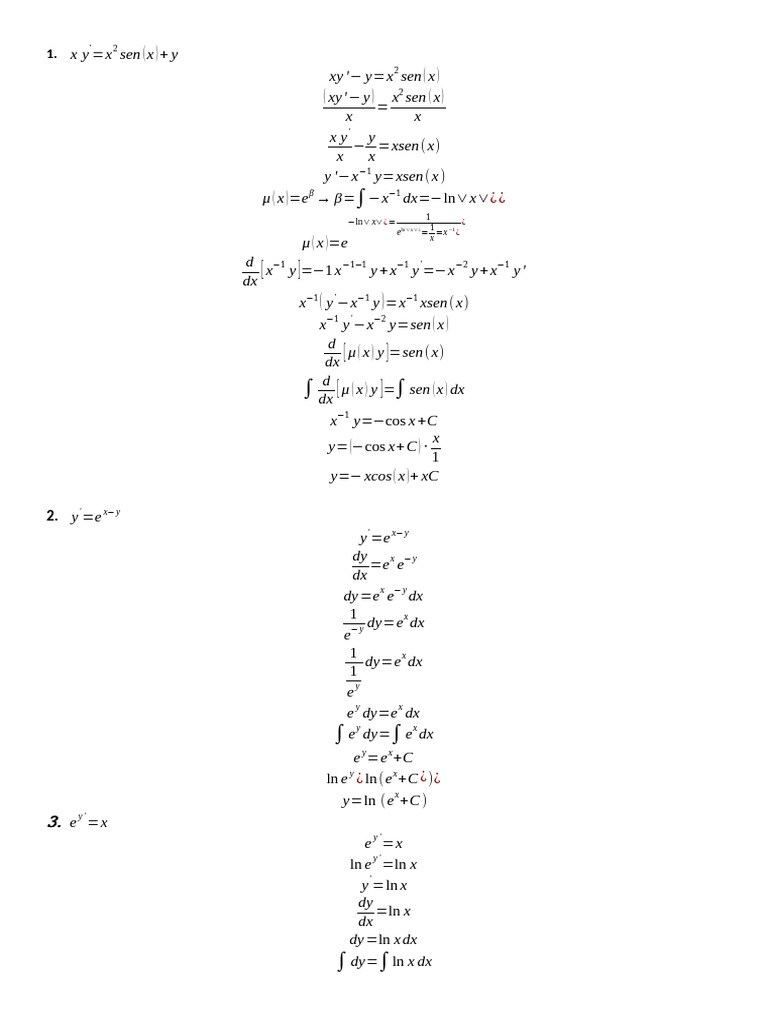 1. x y'=x² sen(x)+y
xy'−y=x² sen(x)
(xy'−y)/x = x² sen(x)/x
x y'/x − y/x = xsen(x)
y'−x⁻¹ y=xsen(x)
μ(x)=e^β → β=∫−x⁻¹ dx=−ln∨x∨¿¿
μ(x)=e^(−ln∨x∨¿=1/e^(ln∨x∨¿)=1/x=x⁻¹¿)¿
d/dx [x⁻¹ y]=−1x⁻¹⁻¹ y+x⁻¹ y'=−x⁻² y+x⁻¹ y'
x⁻¹(y'−x⁻¹ y)=x⁻¹ xsen(x)
x⁻¹ y'−x⁻² y=sen(x)
d/dx [μ(x) y]=sen(x)
∫ d/dx [μ(x) y]=∫ sen(x) dx
x⁻¹ y=−cos x+C
y=(−cos x+C)· x/1
y=−xcos(x)+xC
2. y'=e^(x−y)
y'=e^(x−y)
dy/dx=e^x e^(−y)
dy=e^x e^(−y) dx
1/e^(−y) dy=e^x dx
1/(1/e^y) dy=e^x dx
e^y dy=e^x dx
∫ e^y dy=∫ e^x dx
e^y=e^x+C
ln e^y ¿ ln(e^x+C¿)¿
y=ln (e^x+C)
3. e^(y')=x
e^(y')=x
ln e^(y')=ln x
y'=ln x
dy/dx=ln x
dy=ln x dx
∫ dy=∫ ln x dx